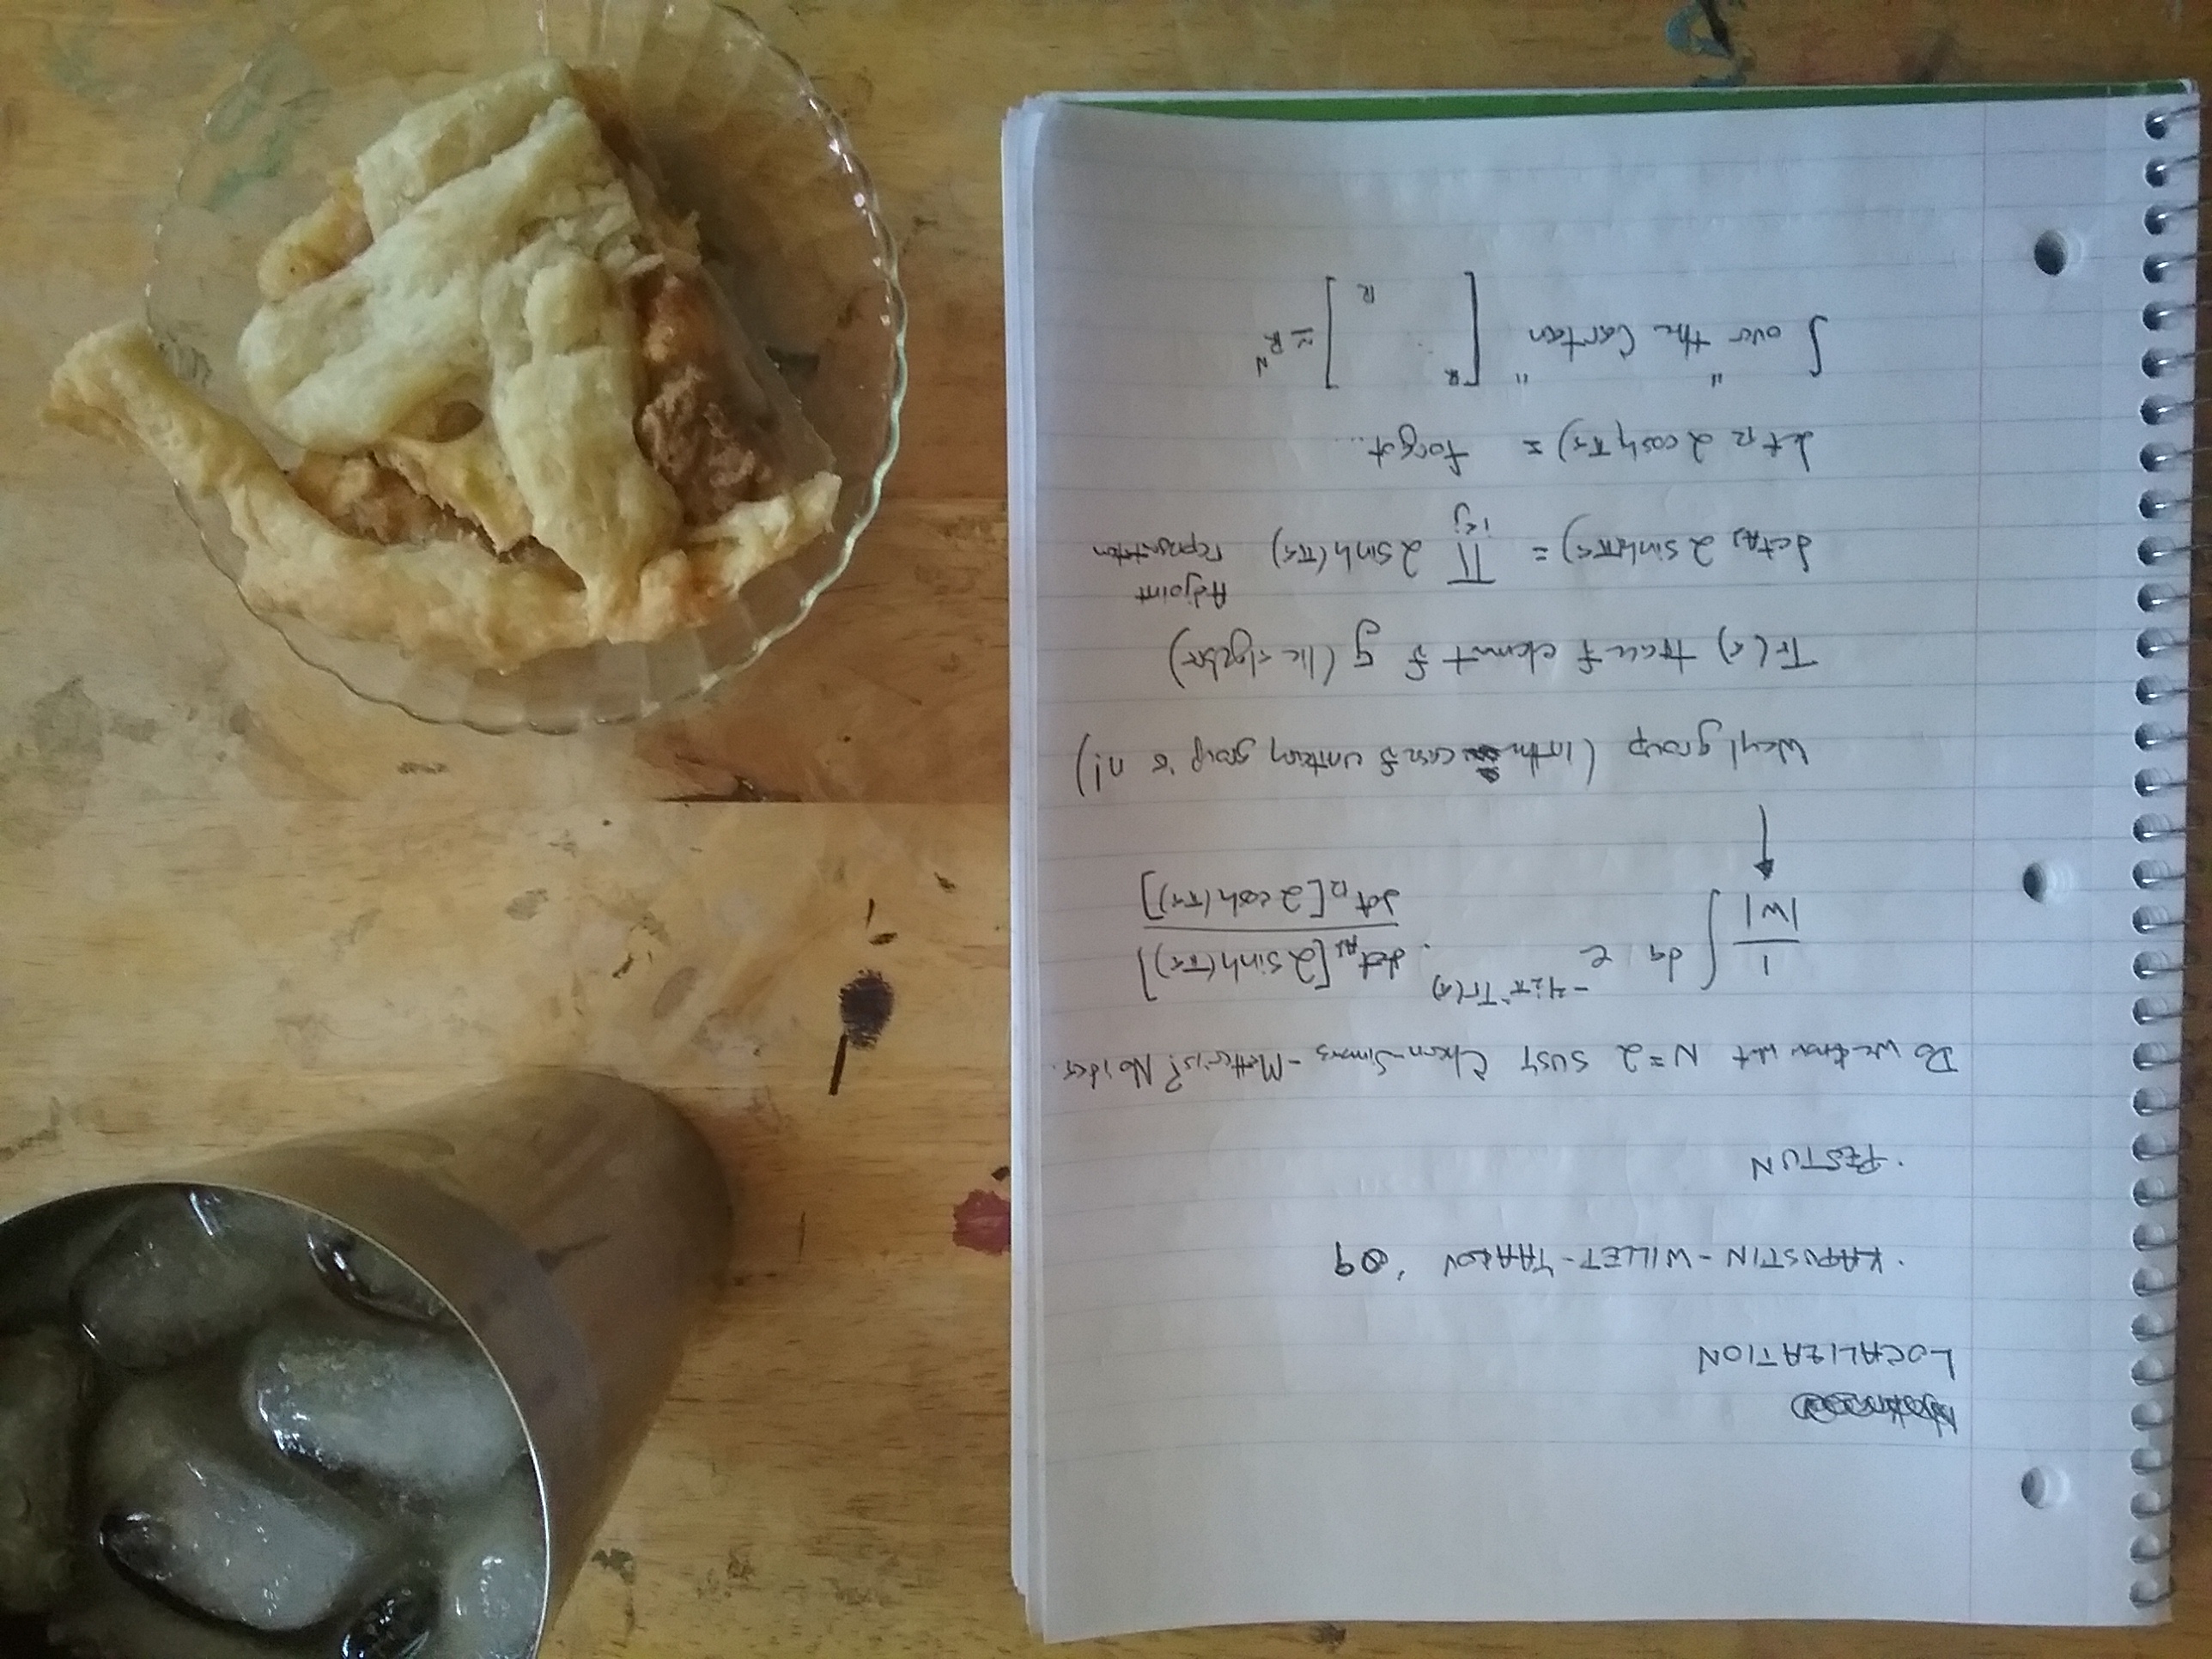 LOCALIZATION
· KAPUSTIN - WILLET - YAAKOV '09
· PESTUN
Do we know what N=2 SUSY Chern-Simons-Matter is? No idea.
1/|W| ∫ da e^{-4iπ² Tr(a)} · det_Ad [2 sinh(πa)] / det_R [2 cosh(πa)]
Weyl group (in the case of unitary group is n!)
Tr(a) trace of element of g (lie algebra)
det_Ad 2 sinh(πa) = ∏_{i<j} 2 sinh(πa) Adjoint representation
det_R 2 cosh πa) = forgot...
∫ "over the Cartan" [R ... R] ≃ R^N